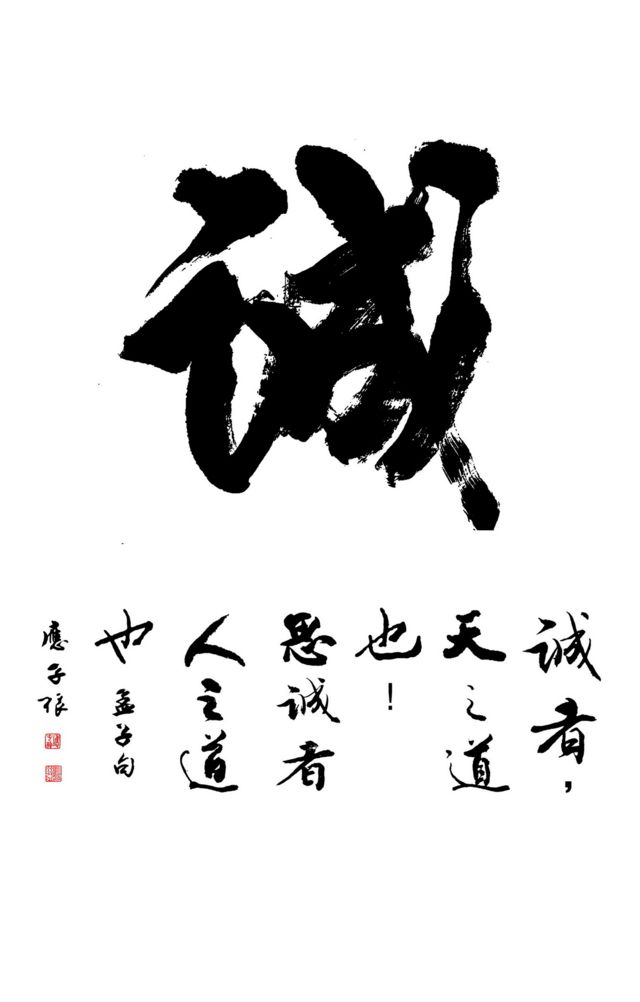 誠
誠者,
天之道
也!
思誠者
人之道
也 孟子句
應子張